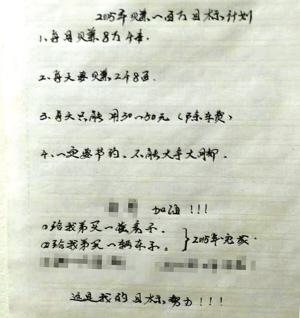 2015年赚一百万目标计划
1、每月赚8万4千.
2、每天要赚248百.
3、每天只能用30~50元(除车费)
4、一定要节约、不能大手大脚.
加油!!!
①给我弟买一套房子.
②给我弟买一辆车子。 } 2015年完成.
这是我的目标努力!!!